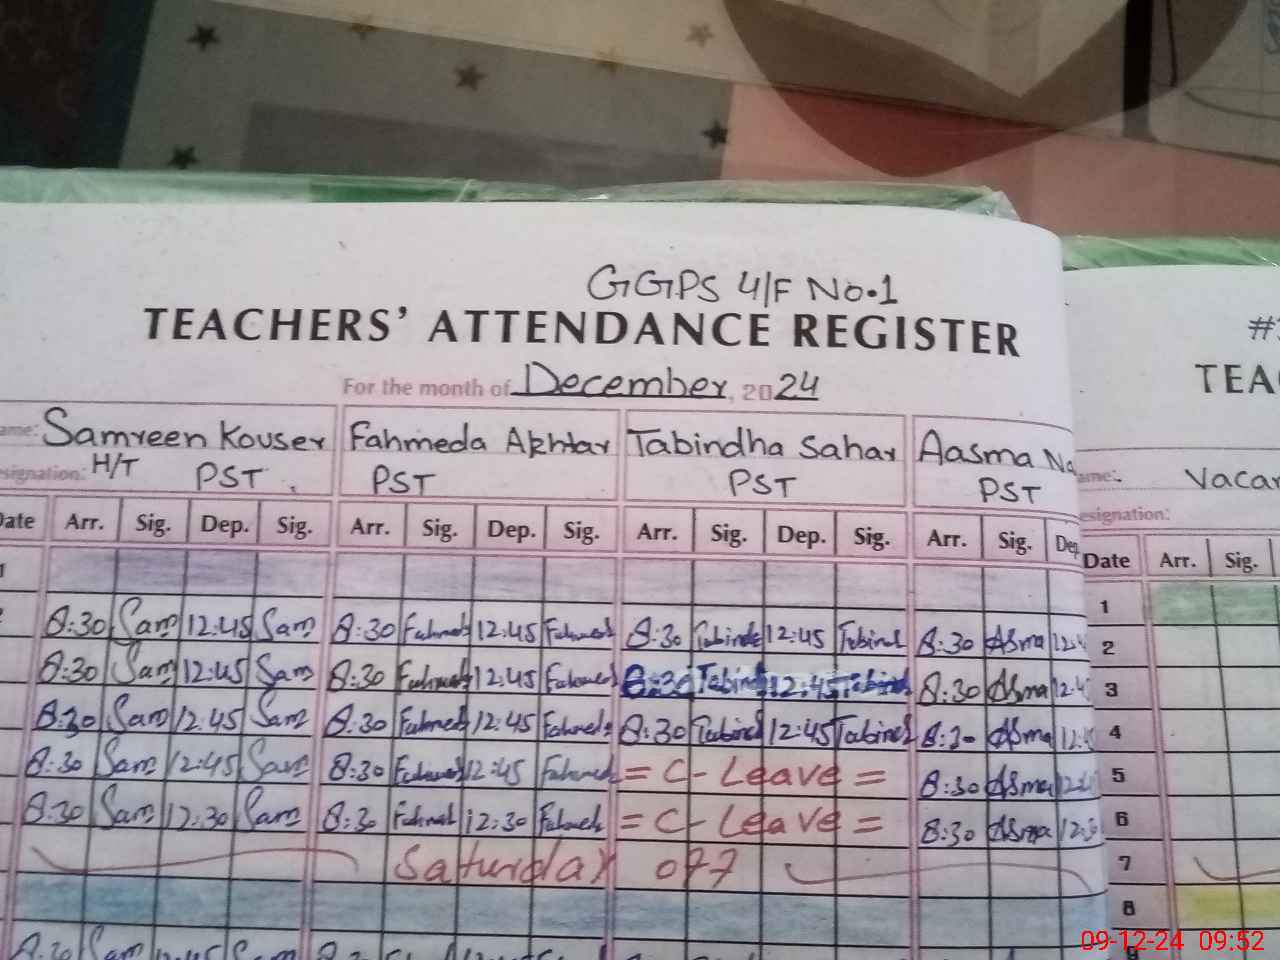 GGPS 4/F No.1
TEACHERS' ATTENDANCE REGISTER
For the month of December, 2024
ame: Samreen Kouser Fahmeda Akhtar Tabindha Sahar Aasma
signation: H/T PST PST PST PST
Date Arr. Sig. Dep. Sig. Arr. Sig. Dep. Sig. Arr. Sig. Dep. Sig. Arr. Sig. Dep.
1
8:30 Sam 12:45 Sam 8:30 Fahmed 12:45 Fahmed 8:30 Tabind 12:45 Tabind 8:30 Asma
8:30 Sam 12:45 Sam 8:30 Fahmed 12:45 Fahmed 8:30 Tabind 12:45 Tabind 8:30 Asma
8:30 Sam 12:45 Sam 8:30 Fahmed 12:45 Fahmed 8:30 Tabind 12:45 Tabind 8:30 Asma
8:30 Sam 12:45 Sam 8:30 Fahmed 12:45 Fahmed = C-Leave = 8:30 Asma
8:30 Sam 12:30 Sam 8:30 Fahmed 12:30 Fahmed = C-Leave = 8:30 Asma
Saturday off
TEA
ame:
esignation:
Date Arr. Sig.
1
2
3
4
5
6
7
8
9
09-12-24 09:52